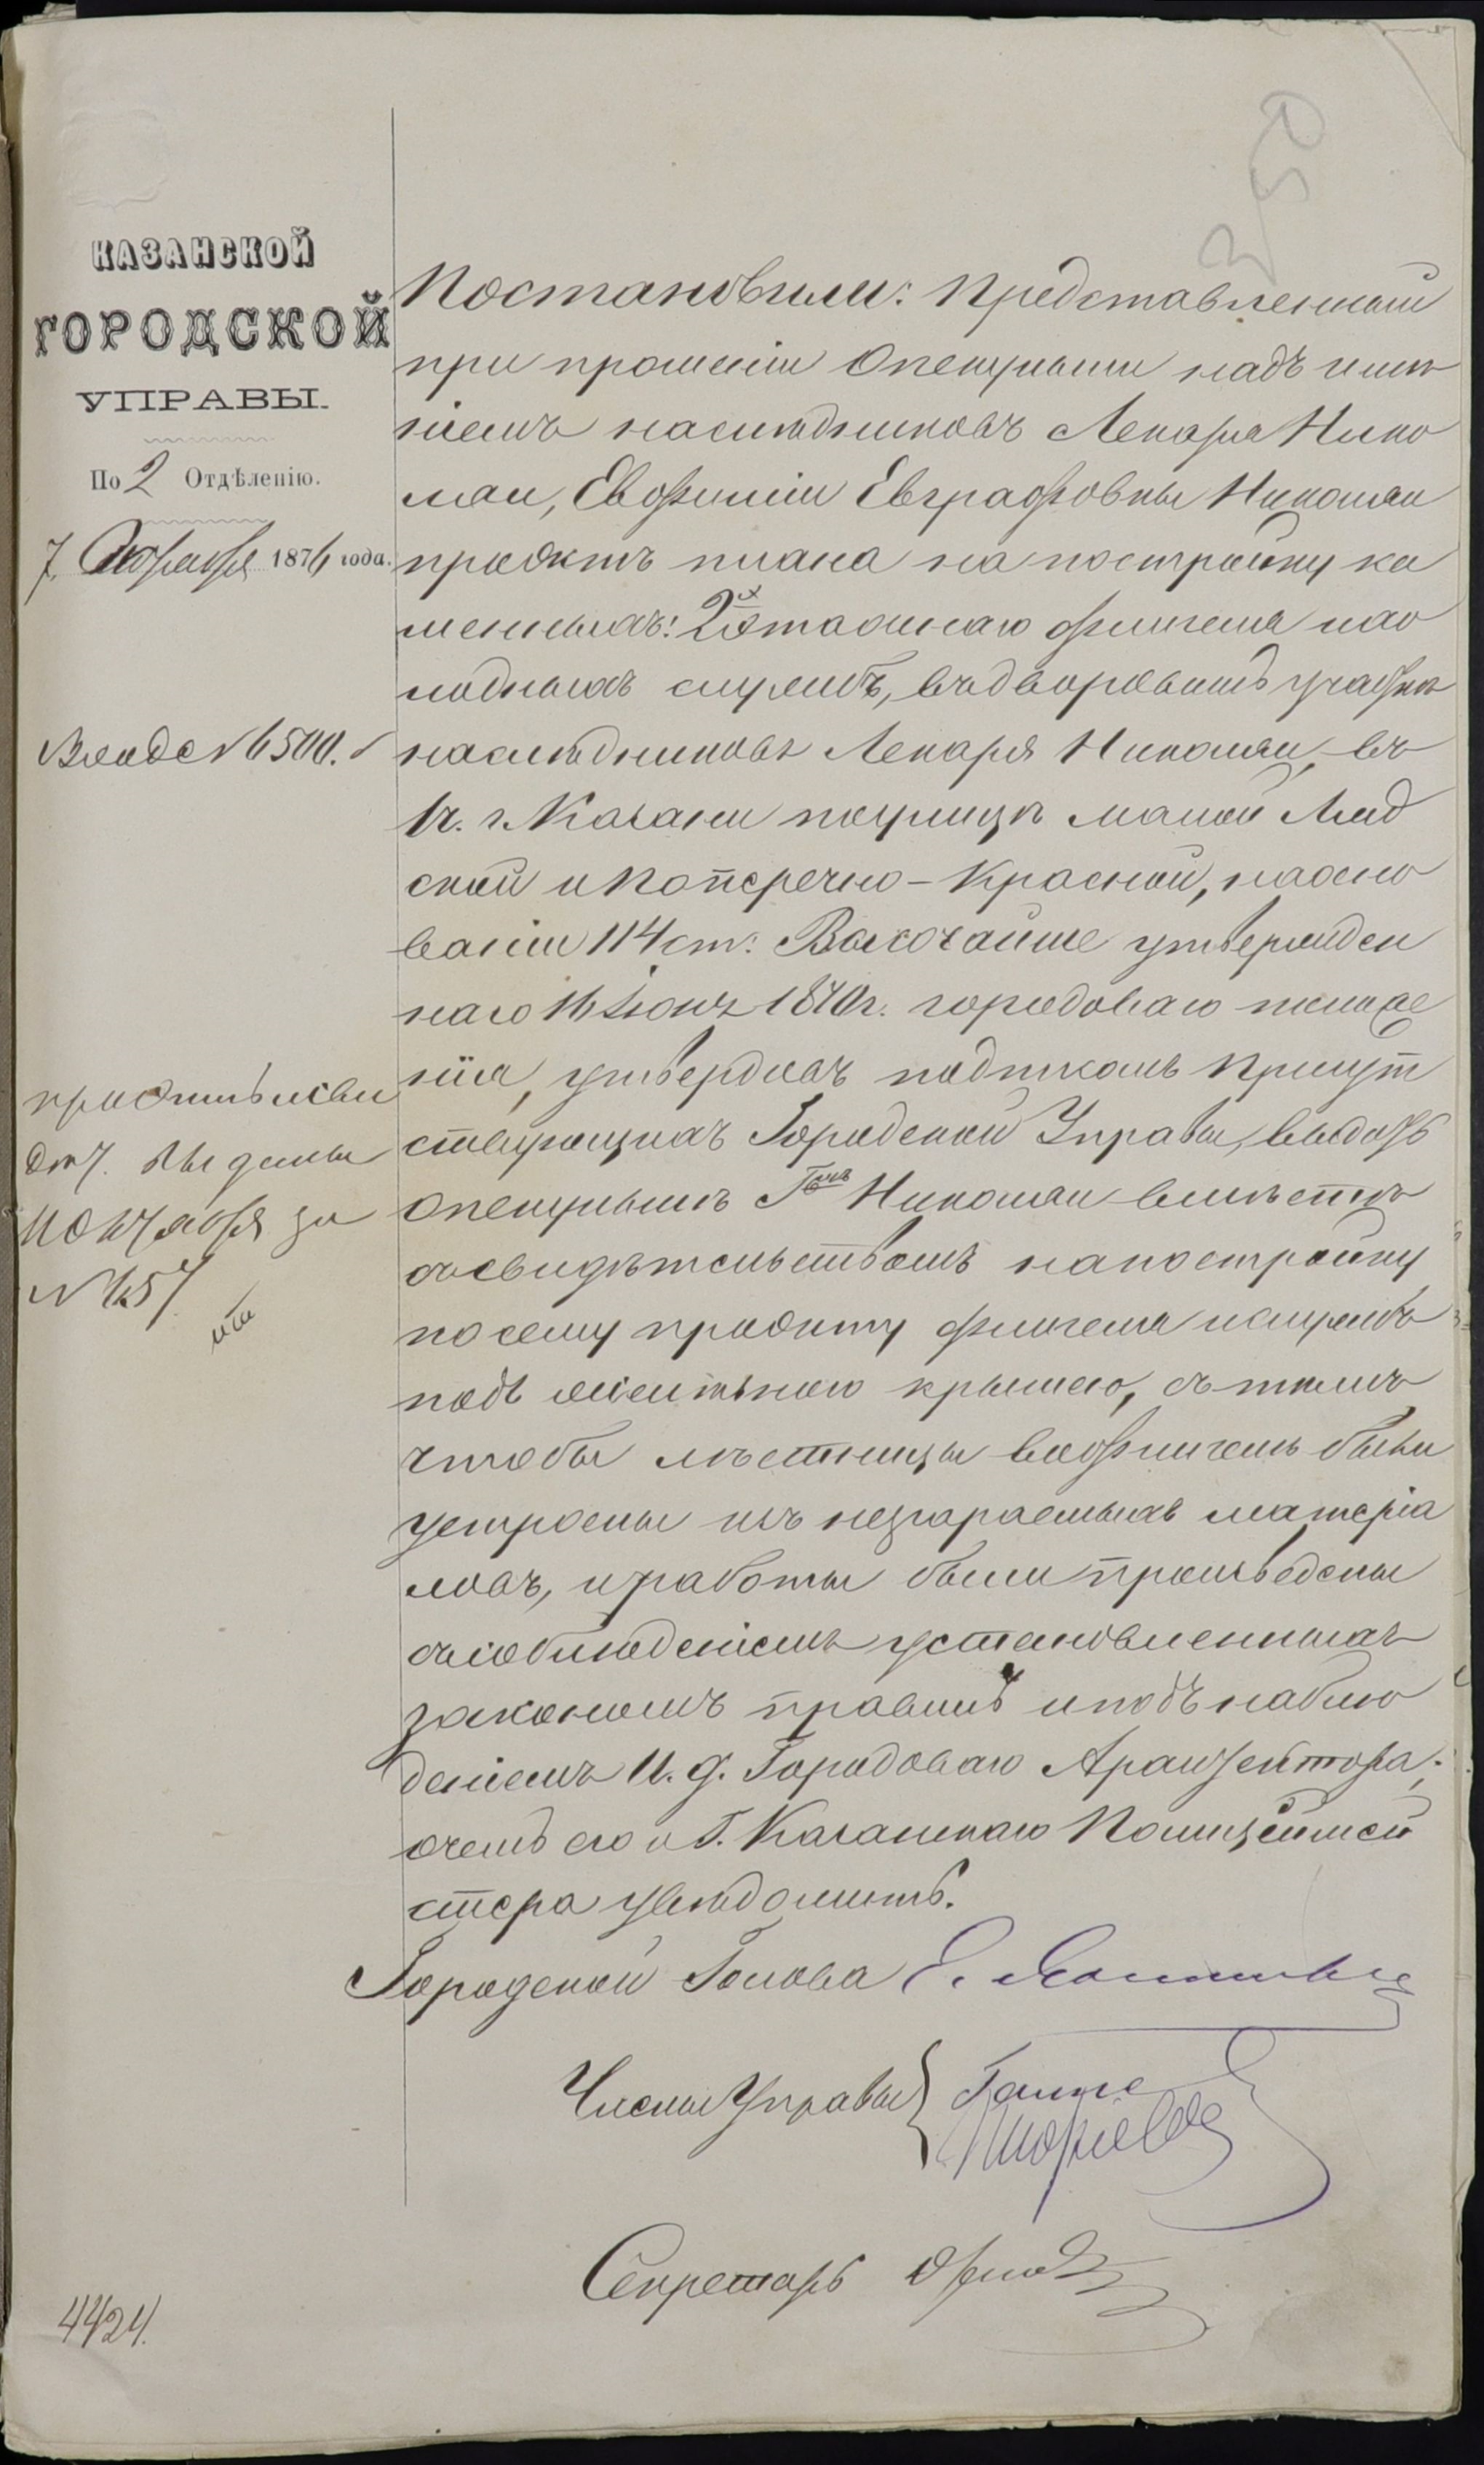 250
КАЗАНСКОЙ
ГОРОДСКОЙ
УПРАВЫ.
По 2 Отдѣленію.
7 Октября 1876 года.
Постановили: Представленный
при прошеніи Опекуншии надъ имѣ
ніемъ наслѣдниковъ Лекаря Нико
лаи, Евфиміи Евграфовны Николаи
проэктъ плана на постройку ка
менныхъ: 2х этажнаго флигеля и хо
лодныхъ службъ, въ дворовомъ участкѣ
наслѣдниковъ Лекаря Николаи, въ
1ч. г. Казани по улицѣ малой Ляд
ской и Поперечно-Красной, на осно
ваніи 114 ст: Высочайше утвержден
наго 16 Іюня 1870г. городоваго положе
нія, утвердивъ подписомъ Присут
ствующихъ Городской Управы, выдать
опекуншѣ Гжѣ Николаи вмѣстѣ
съ свидѣтельствомъ на постройку
по сему проэкту флигеля и службъ
подъ желѣзною крышею, съ тѣмъ
чтобы лѣстницы во флигель были
устроены изъ несгараемыхъ матеріа
ловъ, и работы были произведены
съ соблюденіемъ установленныхъ
закономъ правилъ и подъ наблю
деніемъ И. д. Городоваго Архитектора;
о чемъ его и Г. Казанскаго Полиціймей
стера увѣдомить.
Городской Голова
Члены Управы
Секретарь
Вход № 6500.
проэктъ и сви
дѣт. выданы
Октября за
№
4424.